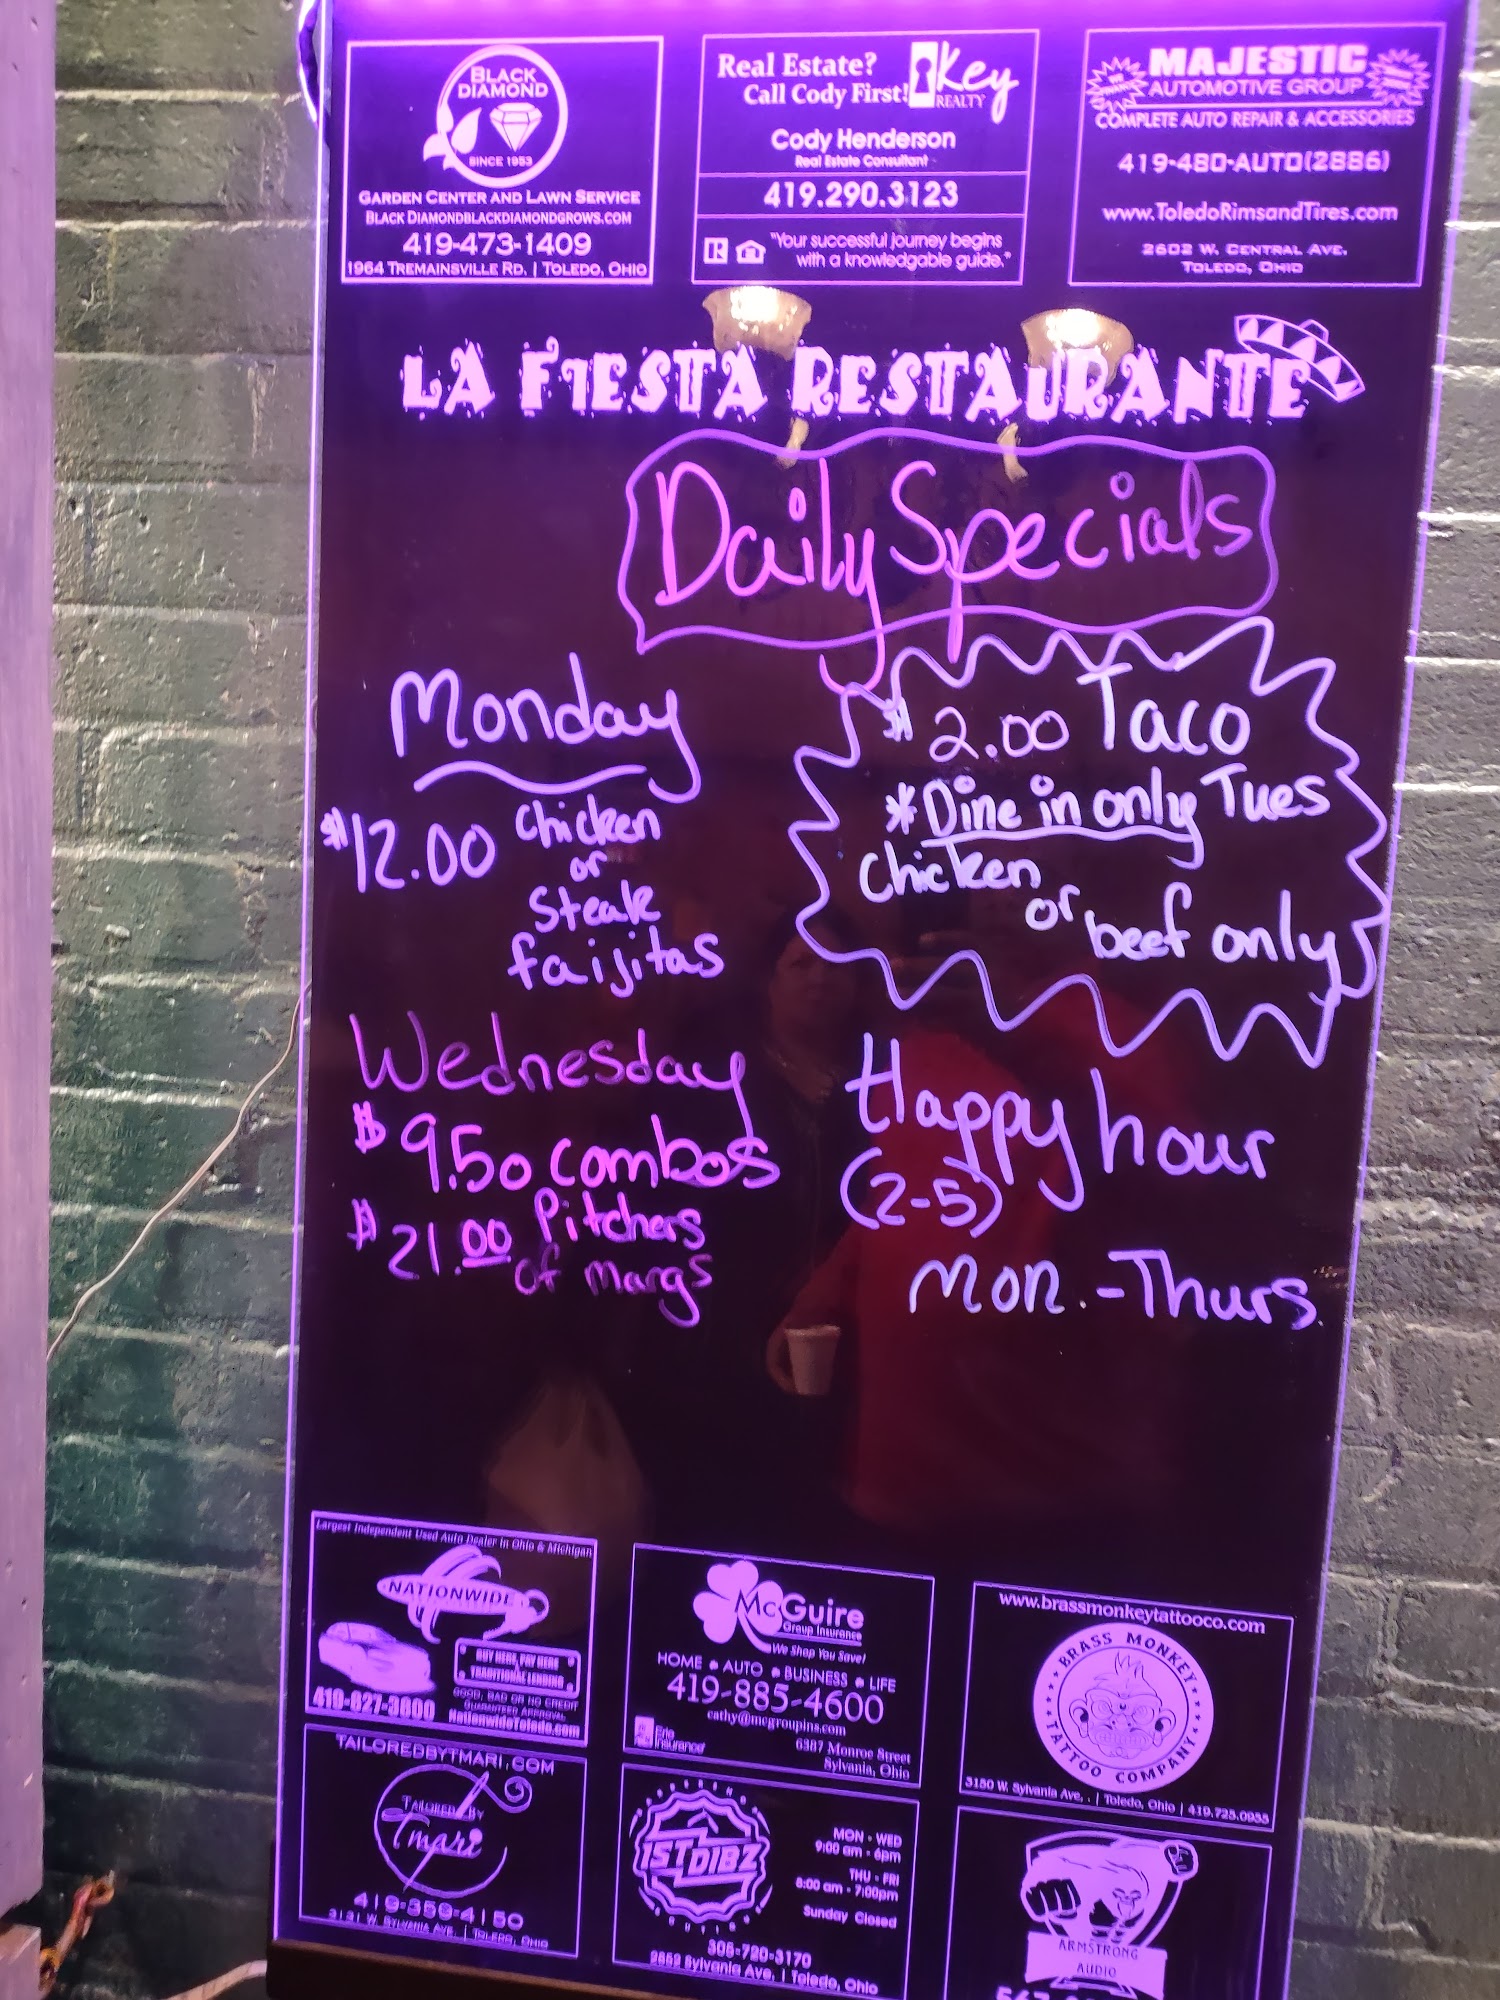 BLACK
DIAMOND
SINCE 1953
GARDEN CENTER AND LAWN SERVICE
BLACK DIAMONDBLACKDIAMONDGROWS.COM
419-473-1409
1964 TREMAINSVILLE RD. | TOLEDO, OHIO
Real Estate?
Call Cody First!
Key
REALTY
Cody Henderson
Real Estate Consultant
419.290.3123
"Your successful journey begins
with a knowledgable guide."
MAJESTIC
AUTOMOTIVE GROUP
COMPLETE AUTO REPAIR & ACCESSORIES
419-480-AUTO(2886)
www.ToledoRimsandTires.com
2602 W. CENTRAL AVE.
TOLEDO, OHIO
LA FIESTA RESTAURANTE
Daily Specials
Monday
$12.00 Chicken
or
Steak
faijitas
$2.00 Taco
*Dine in only Tues
Chicken
or beef only
Wednesday
$9.50 combos
$21.00 Pitchers
of margs
Happy hour
(2-5)
Mon.-Thurs.
Largest Independent Used Auto Dealer in Ohio & Michigan
NATIONWIDE
BUY HERE, PAY HERE
TRADITIONAL LENDING
GOOD, BAD OR NO CREDIT
GUARANTEED APPROVAL
419-827-3800
NationwideToledo.com
McGuire
Group Insurance
We Shop You Save!
HOME • AUTO • BUSINESS • LIFE
419-885-4600
cathy@mcgroupins.com
Erie
Insurance
6387 Monroe Street
Sylvania, Ohio
www.brassmonkeytattooco.com
BRASS MONKEY
TATTOO COMPANY
3150 W. Sylvania Ave. . | Toledo, Ohio | 419.725.0955
TAILOREDBYTMARI.COM
TAILORED BY
Tmari
419-359-4150
3131 W. SYLVANIA AVE. | TOLEDO, OHIO
1ST DIBZ
MON - WED
9:00 am - 6pm
THU - FRI
8:00 am - 7:00pm
Sunday Closed
305-720-3170
2852 Sylvania Ave. | Toledo, Ohio
ARMSTRONG
AUDIO